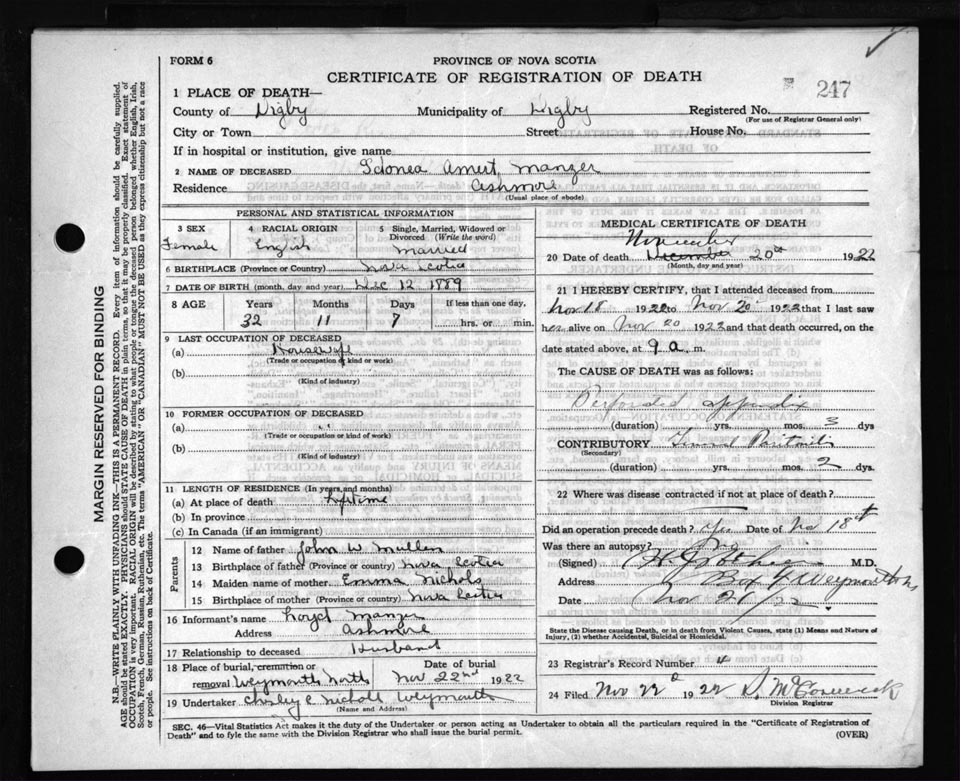 FORM 6
PROVINCE OF NOVA SCOTIA
CERTIFICATE OF REGISTRATION OF DEATH
247
1 PLACE OF DEATH—
County of Digby Municipality of Digby Registered No.
(For use of Registrar General only)
City or Town Street House No.
If in hospital or institution, give name
2 NAME OF DECEASED Manzer
Residence Ashmore
(Usual place of abode)
PERSONAL AND STATISTICAL INFORMATION
3 SEX
Female
4 RACIAL ORIGIN
English
5 Single, Married, Widowed or Divorced (Write the word)
Married
6 BIRTHPLACE (Province or Country) Nova Scotia
7 DATE OF BIRTH (month, day and year) Dec 12 1889
8 AGE Years Months Days If less than one day.
32 11 7 hrs. or min.
9 LAST OCCUPATION OF DECEASED
(a) Housewife
(Trade or occupation or kind or work)
(b)
(Kind of industry)
10 FORMER OCCUPATION OF DECEASED
(a)
(Trade or occupation or kind or work)
(b)
(Kind of industry)
11 LENGTH OF RESIDENCE (In years and months)
(a) At place of death Lifetime
(b) In province
(c) In Canada (if an immigrant)
Parents
12 Name of father John W Mullen
13 Birthplace of father (Province or country) Nova Scotia
14 Maiden name of mother Emma Nichols
15 Birthplace of mother (Province or country) Nova Scotia
16 Informant's name Manzer
Address Ashmore
17 Relationship to deceased Husband
18 Place of burial, cremation or Date of burial
removal Weymouth North Nov 22nd 1922
19 Undertaker Weymouth
(Name and Address)
MEDICAL CERTIFICATE OF DEATH
November
20 Date of death December 20th 1922
(Month, day and year)
21 I HEREBY CERTIFY, that I attended deceased from
Nov 18 1922 to Nov 20 1922 that I last saw
her alive on Nov 20 1922 and that death occurred, on the
date stated above, at 9 a. m.
The CAUSE OF DEATH was as follows:
Perforated appendix
(duration) yrs. mos. 3 dys
CONTRIBUTORY General Peritonitis
(Secondary)
(duration) yrs. mos. 2 dys.
22 Where was disease contracted if not at place of death?
Did an operation precede death? Yes Date of No 18th
Was there an autopsy? No
(Signed) M.D.
Address Weymouth
Date Nov 20/22
State the Disease causing Death, or in death from Violent Causes, state (1) Means and Nature of
Injury, (2) whether Accidental, Suicidal or Homicidal.
23 Registrar's Record Number 4
24 Filed Nov 22d 1922
Division Registrar
SEC. 46—Vital Statistics Act makes it the duty of the Undertaker or person acting as Undertaker to obtain all the particulars required in the "Certificate of Registration of
Death" and to fyle the same with the Division Registrar who shall issue the burial permit.
(OVER)
MARGIN RESERVED FOR BINDING
N.B.—WRITE PLAINLY WITH UNFADING INK—THIS IS A PERMANENT RECORD. Every item of information should be carefully supplied.
AGE should be stated EXACTLY. PHYSICIANS should STATE CAUSE OF DEATH in plain terms, so that it may be properly classified. Exact statement of
OCCUPATION is very important. RACIAL ORIGIN will be described by stating to what people or tongue the deceased person belonged whether English, Irish,
Scotch, French, German, Russian, Ruthenian, etc. The terms "AMERICAN" or "CANADIAN" MUST NOT BE USED as they express citizenship but not a race
or people. See instructions on back of Certificate.